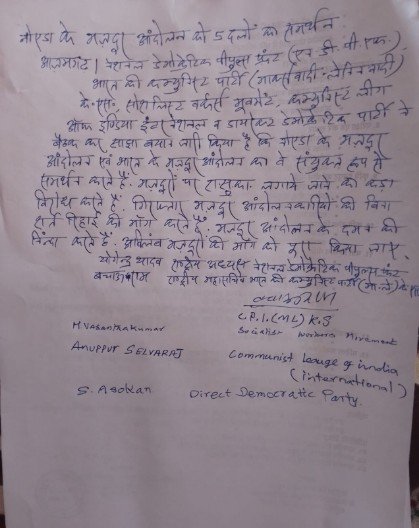 नोएडा के मजदूर आंदोलन को 5 दलों का समर्थन:
आजमगढ़। नेशनल डेमोक्रेटिक पीपुल्स फ्रंट (एन डी पी एफ)
भारत की कम्युनिस्ट पार्टी (मार्क्सवादी-लेनिनवादी)
के.एस. सोशलिस्ट वर्कर्स मूवमेंट, कम्युनिस्ट लीग
आफ इण्डिया इंटरनेशनल व डायरेक्ट डेमोक्रेटिक पार्टी ने
बैठक कर साझा बयान जारी किया है कि नोएडा के मजदूर
आंदोलन एवं भारत के मजदूर आंदोलन का वे संयुक्त रूप से
समर्थन करते हैं. मजदूरों पर रासुका लगाये जाने का कड़ा
विरोध करते हैं. गिरफ्तार मजदूर आंदोलनकारियों की बिना
शर्त रिहाई की मांग करते हैं. मजदूर आंदोलन के दमन की
निन्दा करते हैं. अविलंब मजदूरों की मांग को पूरा किया जाए.
योगेन्द्र यादव राष्ट्रीय अध्यक्ष नेशनल डेमोक्रेटिक पीपुल्स फ्रंट
राम राष्ट्रीय महासचिव भारत की कम्युनिस्ट पार्टी (मा.ले) के.एस
C.P.I.(ML) K.S
M. Vasanthakumar Socialist Workers Movement
ANUPPUR SELVARAJ Communist Leauge of india
(international)
S. Asokan Direct Democratic Party.